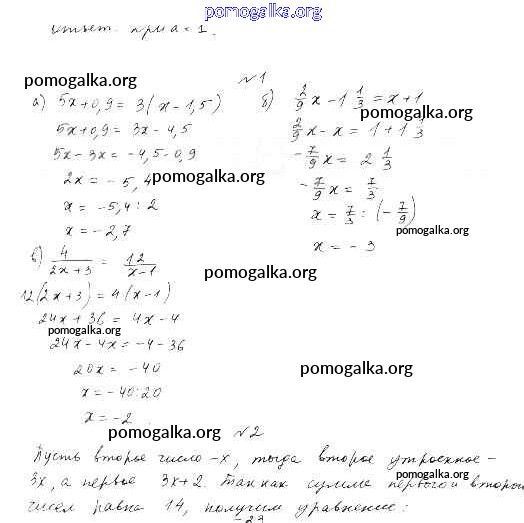 pomogalka.org
Ответ. при a = 1.
№1
pomogalka.org
а) 5x+0,9 = 3(x-1,5)
5x+0,9 = 3x-4,5
5x-3x = -4,5-0,9
2x = -5,4
pomogalka.org
x = -5,4:2
x = -2,7
б) 2/9 x - 1 1/3 = x+1
pomogalka.org
2/9 x - x = 1 + 1 1/3
-7/9 x = 2 1/3
-7/9 x = 7/3
x = 7/3 : (-7/9)
pomogalka.org
x = -3
в) 4/(2x+3) = 12/(x-1)
pomogalka.org
12(2x+3) = 4(x-1)
24x+36 = 4x-4
pomogalka.org
24x-4x = -4-36
20x = -40
pomogalka.org
x = -40:20
x = -2
pomogalka.org
№2
Пусть второе число -x, тогда второе утроенное -
3x, а первое 3x+2. Так как сумма первого и второго
pomogalka.org
чисел равна 14, получим уравнение: